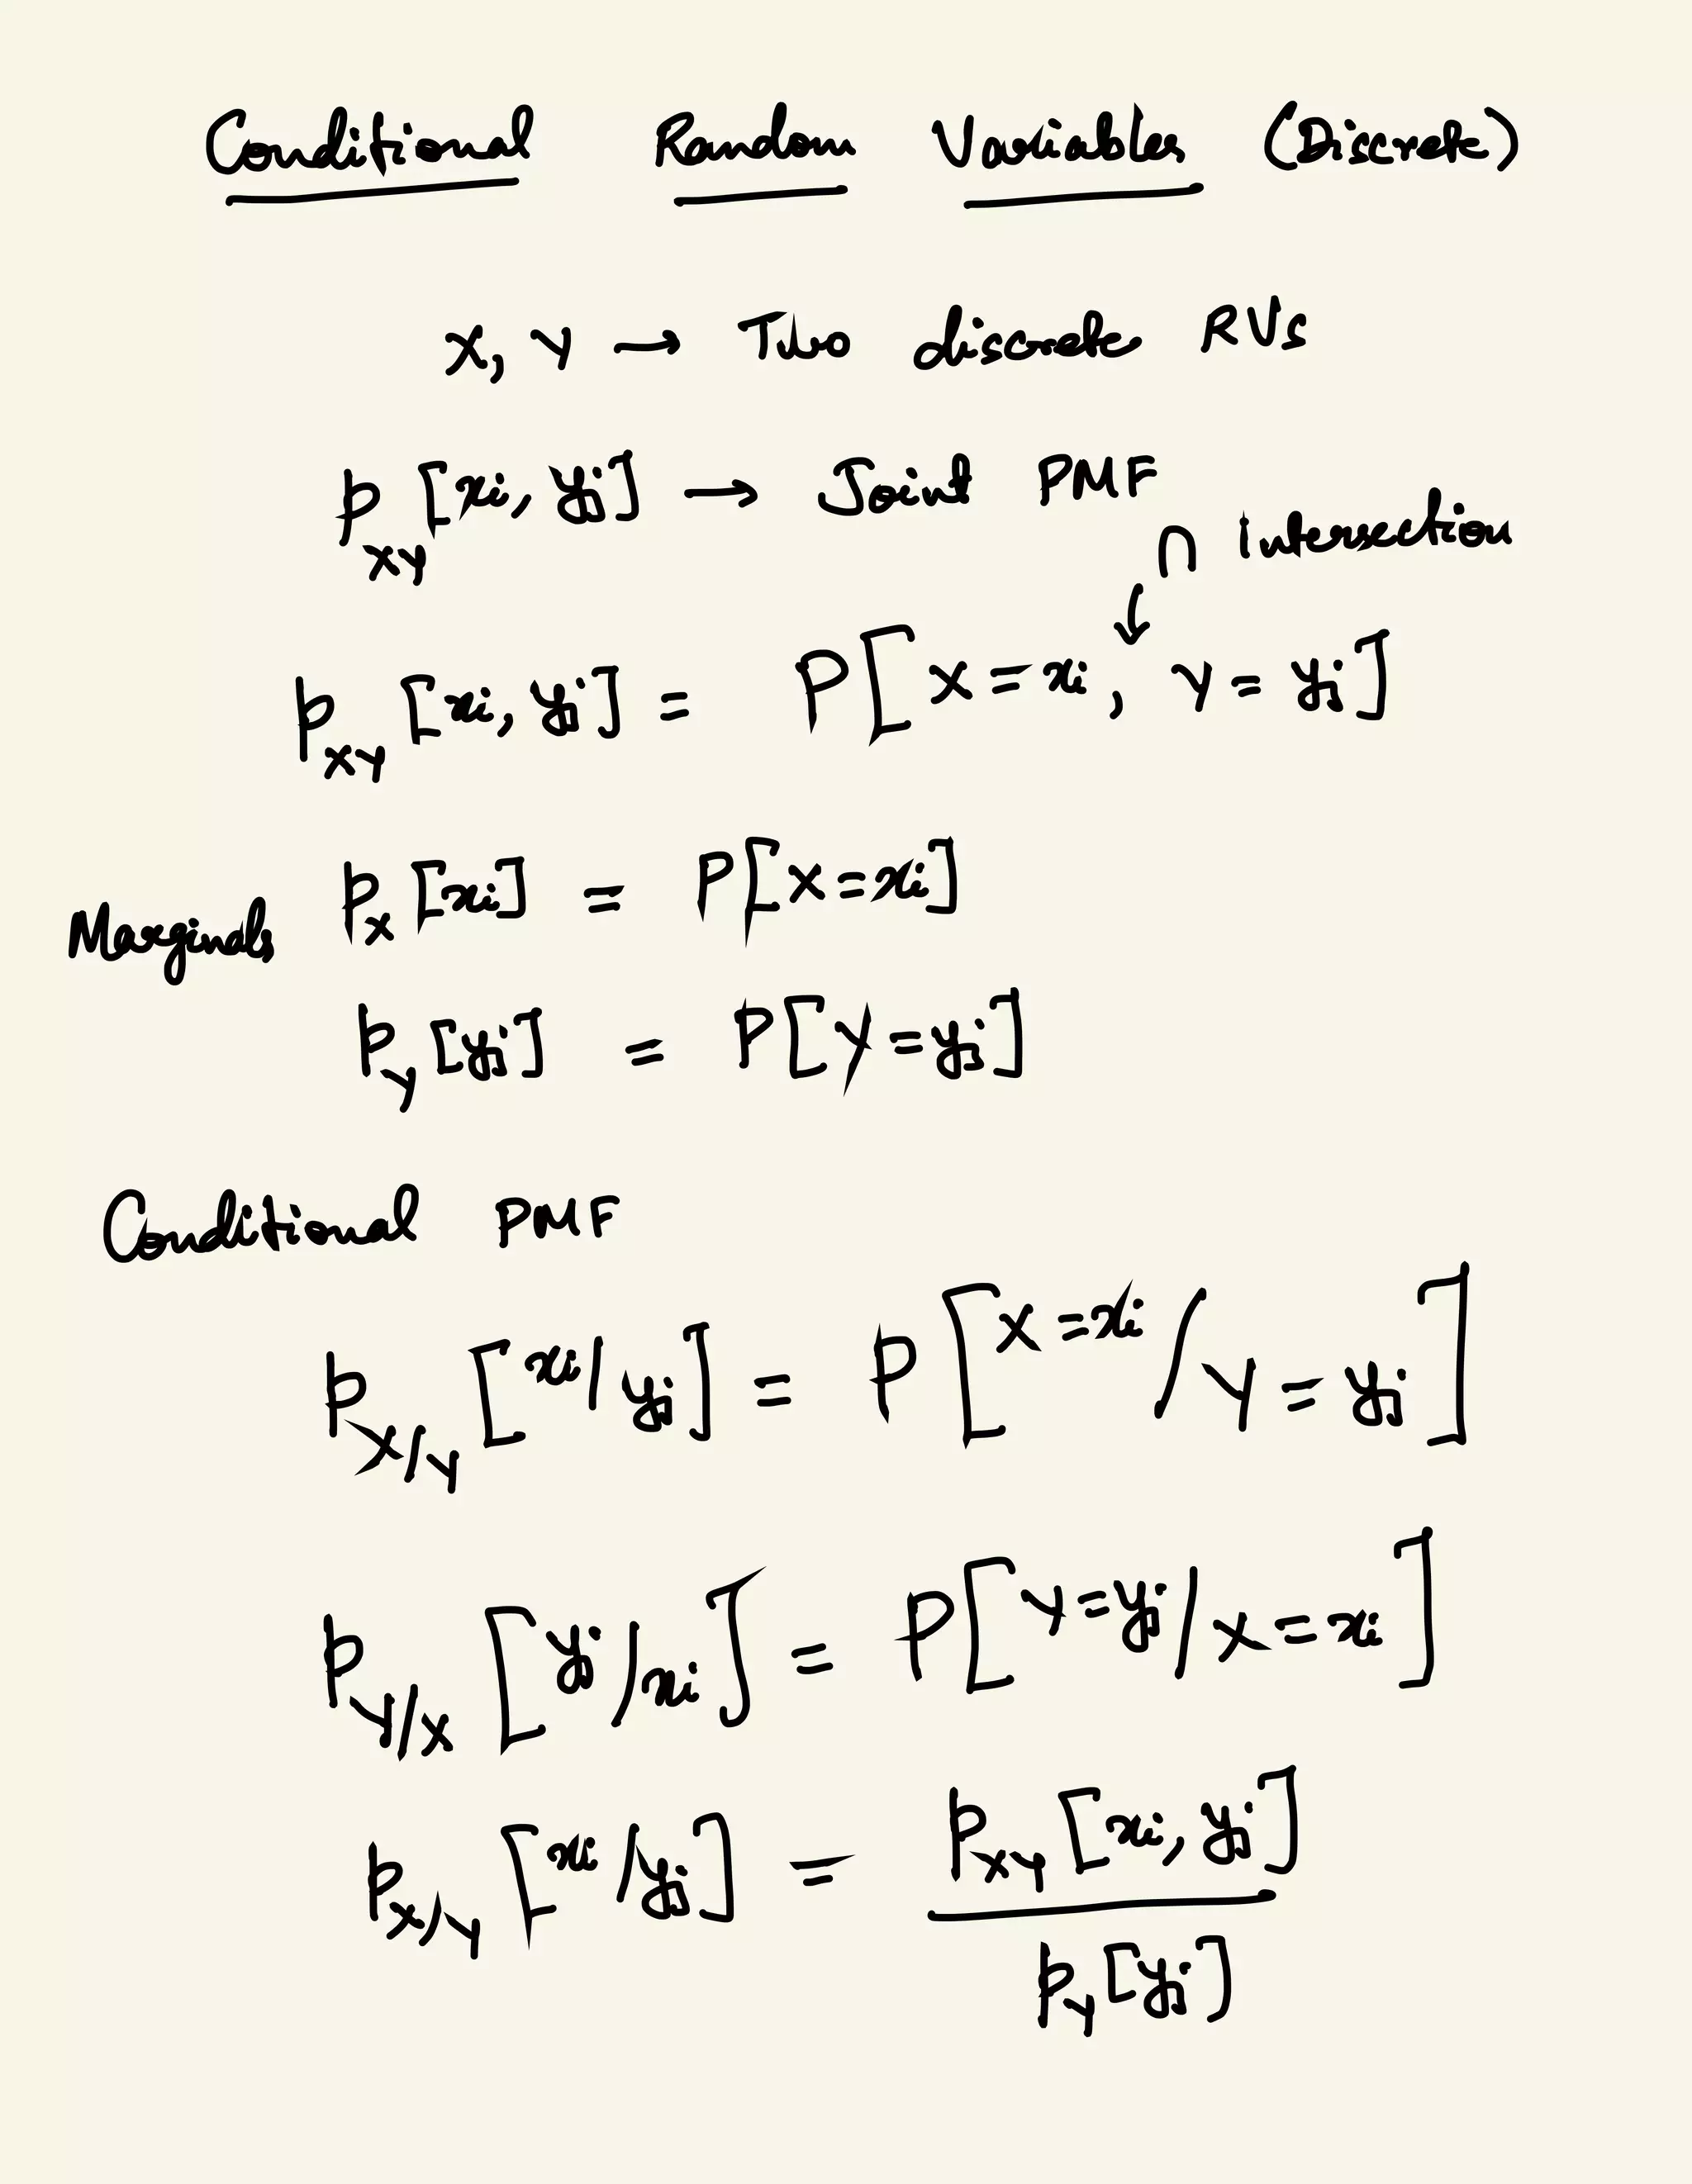 Conditional Random Variables (Discrete)
X, Y → Two discrete RVs
p_XY [xi, yj] → Joint PMF
∩ intersection
↓
p_XY [xi, yj] = P[X = xi, Y = yj]
Marginals p_X [xi] = P[X = xi]
p_Y [yj] = P[Y = yj]
Conditional PMF
p_X/Y [xi/yj] = P[X = xi / Y = yj]
p_Y/X [yj/xi] = P[Y = yj / X = xi]
p_X/Y [xi/yj] = p_XY [xi, yj]
p_Y [yj]